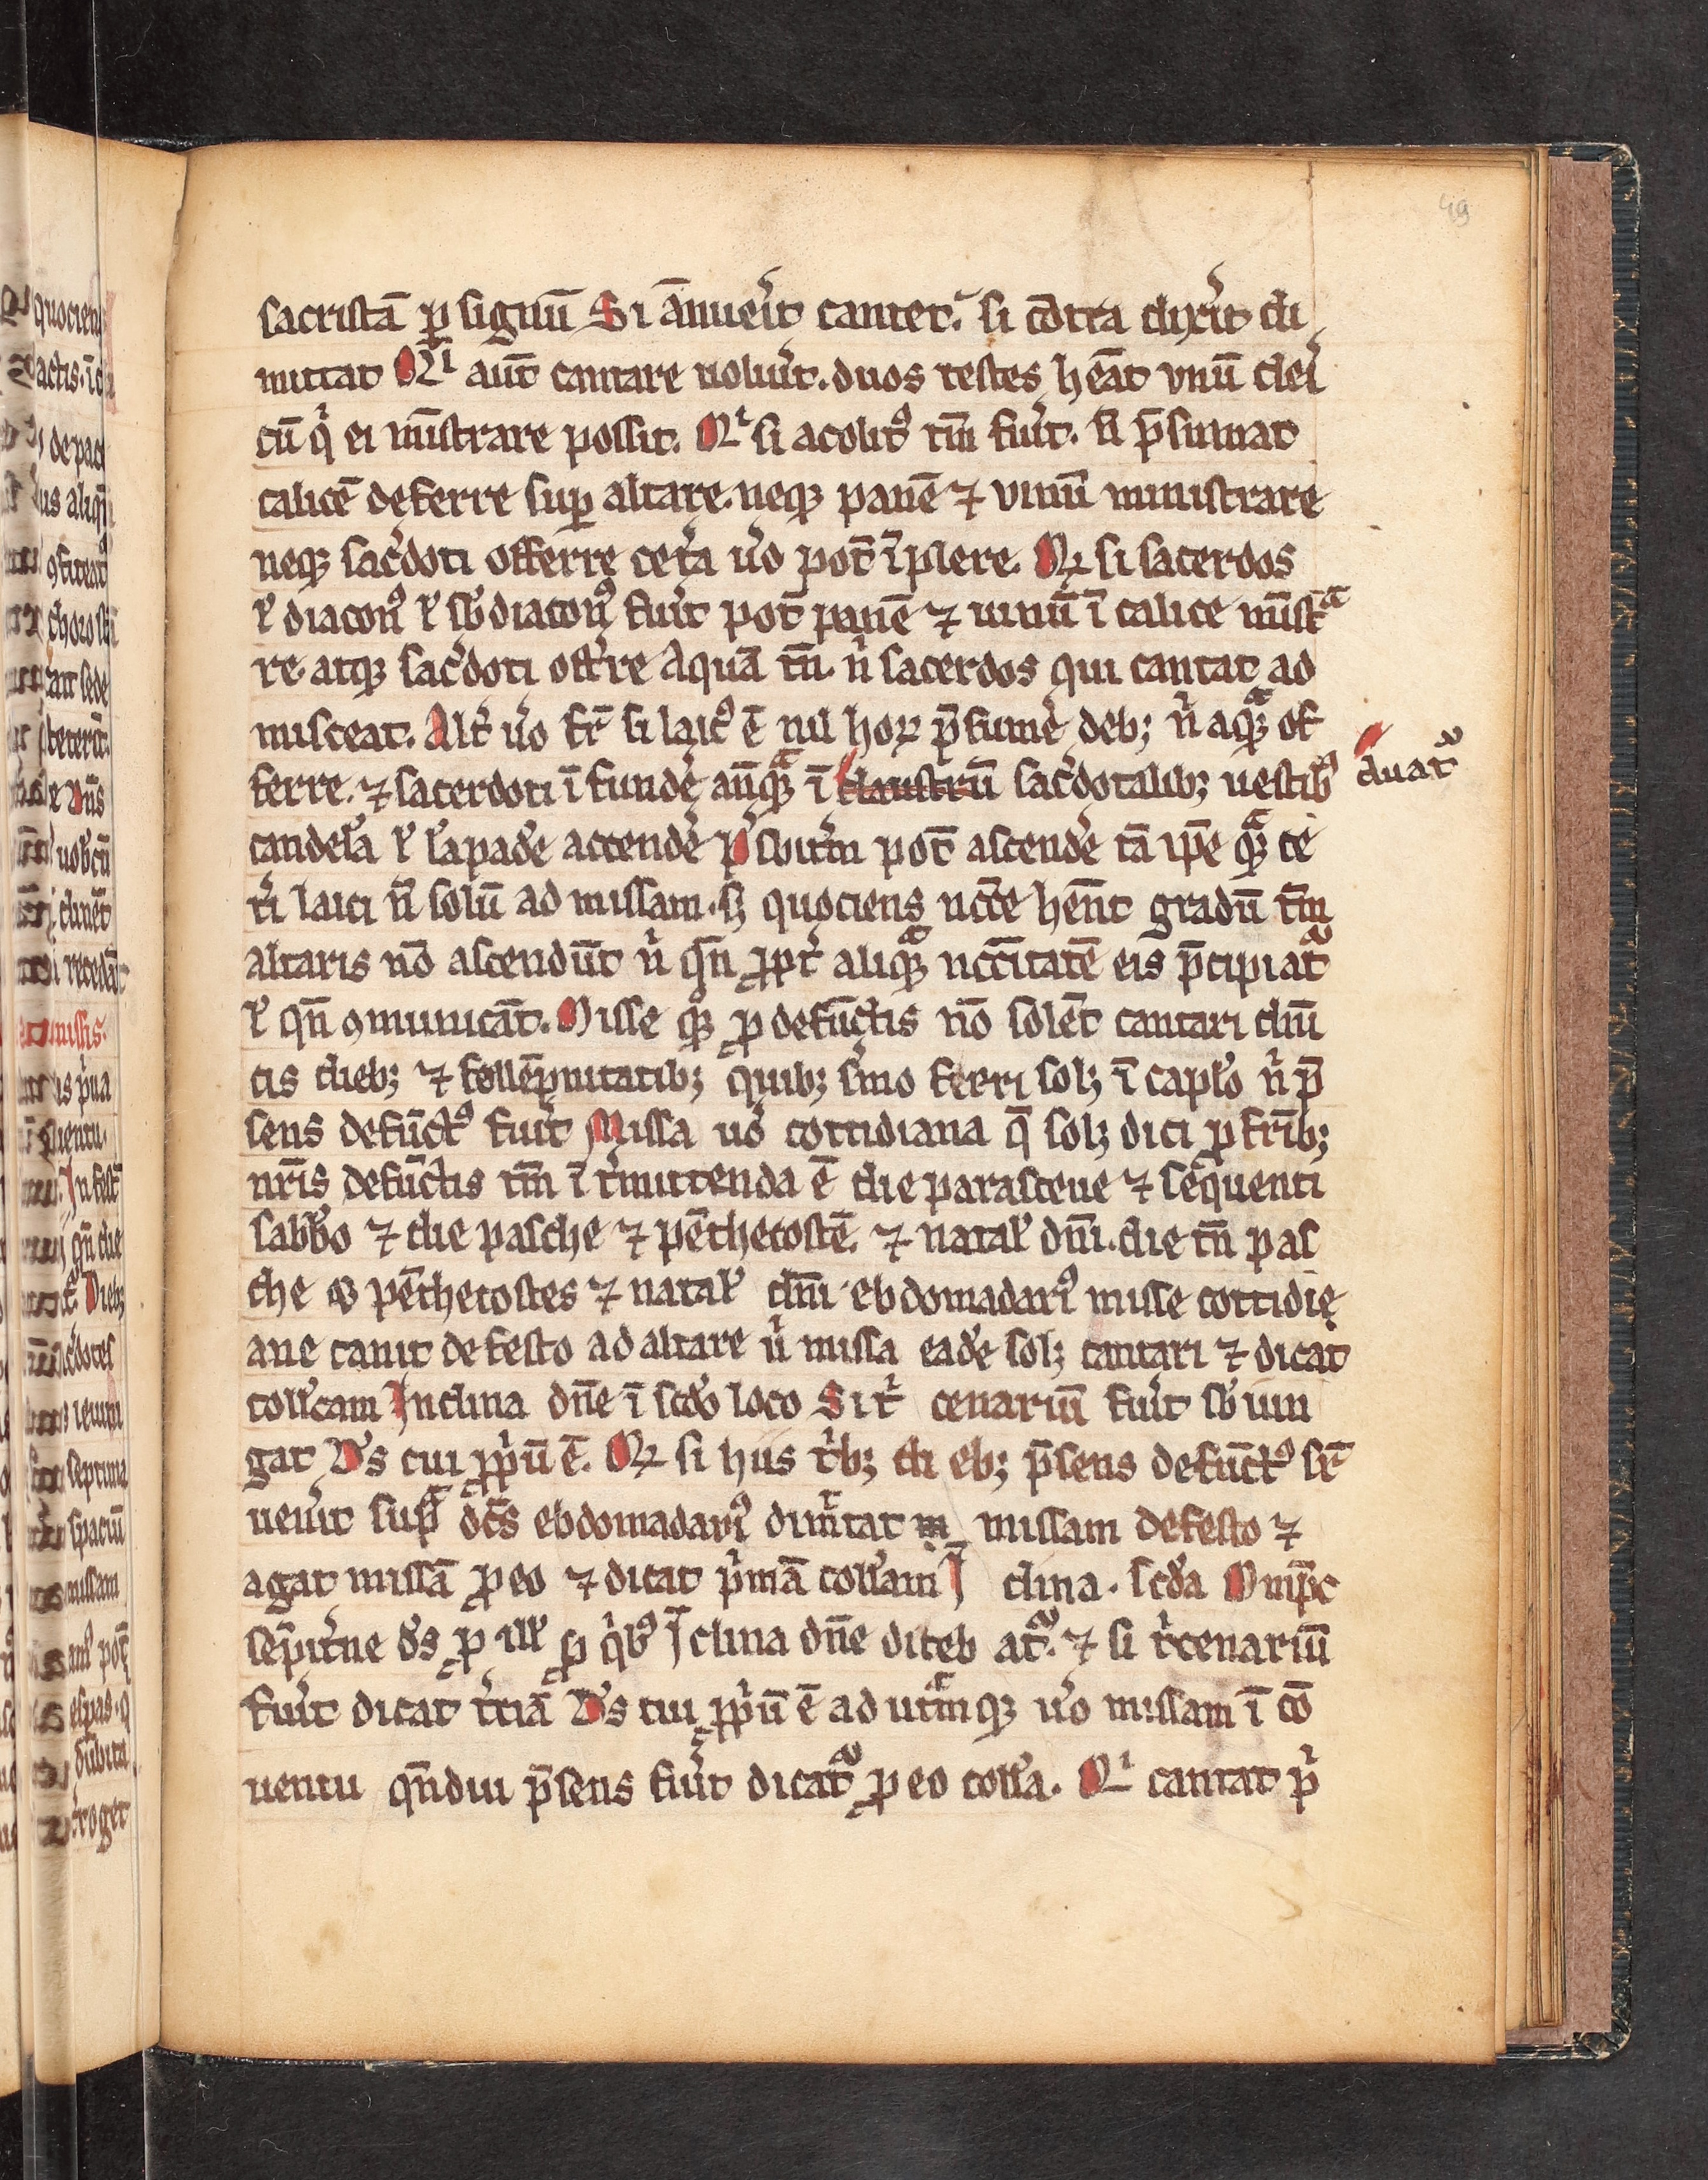 49
sacristā ꝑ signū Si ānuerͥt cantet. si cōtra dixͥt di
mittat Qͥ aut̄ cantare uoluͥt. duos testes hēat vnū cleͥ
cū qͥ ei mīstrare possit. Qͥ si acolitꝰ tm̄ fuͥt. n̄ p̄sumat
calicē deferre suꝑ altare. neqꝫ panē ⁊ vinū ministrare
neqꝫ sac̓doti offerre cet̓a u̓o pot̄ īplere. Qꝛ si sacerdos
ł diaconꝰ ł sb̓diaconꝰ fuͥt pot̄ panē ⁊ uinū ī calice mīstᵃ
re atqꝫ sac̓doti off̓re Aquā tn̄. nͥ sacerdos qui cantat ad
misceat. Alt̓ u̓o fr̄ si laicꝰ ē nil hoꝝ p̄sumē debꝫ nͥ aqᵃꝫ of
ferre. ⁊ sacerdoti ī fundē anqᵃꝫ ī claustrū sac̓dotalibꝫ uestibꝰ
duat᷑
candela ł lāpade accendē p̓sbitm̄ pot̄ ascendē tā ip̄e qᵃꝫ ce
t̓i laici n̄ solū ad missam. sꝫ quociens nc̄ce hēnt gradū tm̄
altaris nō ascendūt nͥ qn̄ ꝓpt̓ aliqᵃꝫ nccītatē eis p̄cipiat᷑
ł qn̄ ꝯmunicāt. Misse qꝫ ꝓ defūctis nō solēt cantari dn̄i
cis diebꝫ ⁊ sollēpnitatibꝫ quibꝫ s̓mo ferri solꝫ ī caplo nͥ p̄
sens defūctꝰ fuͥt Missa uo̓ cottidiana q̄ solꝫ dici ꝓ fr̄ibꝫ
nr̄is defūctis tm̄ ī t̓mittenda ē die parasceue ⁊ seq̄uenti
sabb̓o ⁊ die pasche ⁊ pēthecostē. ⁊ natal̓ dn̄i. die tn̄ pas
che ⁊ pēthecostes ⁊ natal̓ dn̄i ebdomadariꝰ misse cottidi
ane canit de festo ad altare uͥ missa eadē solꝫ cantari ⁊ dicat
coll̓cam Inclina dn̄e ī scd̓o loco Si tͥ cenariū fuͥt sb̓ iun
gat D̓s cui ꝓpͥū ē. Qꝛ si hiis tͥbꝫ di ebꝫ p̄sens defūctꝰ sr̄
uenͥt supᵃ dc̄s ebdomadariꝰ dimͥtat missam de festo ⁊
agat missā ꝓ eo ⁊ dicat pͥmā coll̓am Ī clina. scd̓a Omp̄c
sep̄it̓ne d̓s ꝓ ill̓ ꝓ qͥbꝰ Īclina dn̄e diceb at᷑. ⁊ si tͥcenariū
fuͥt dicat t̓ciā D̓s cui ꝓpͥū ē ad utᵃm qꝫ u̓o missam ī cō
uentu qn̄diu p̄sens fuͥt dicat᷑ ꝓ eo coll̓a. Qͥ cantat pͥ